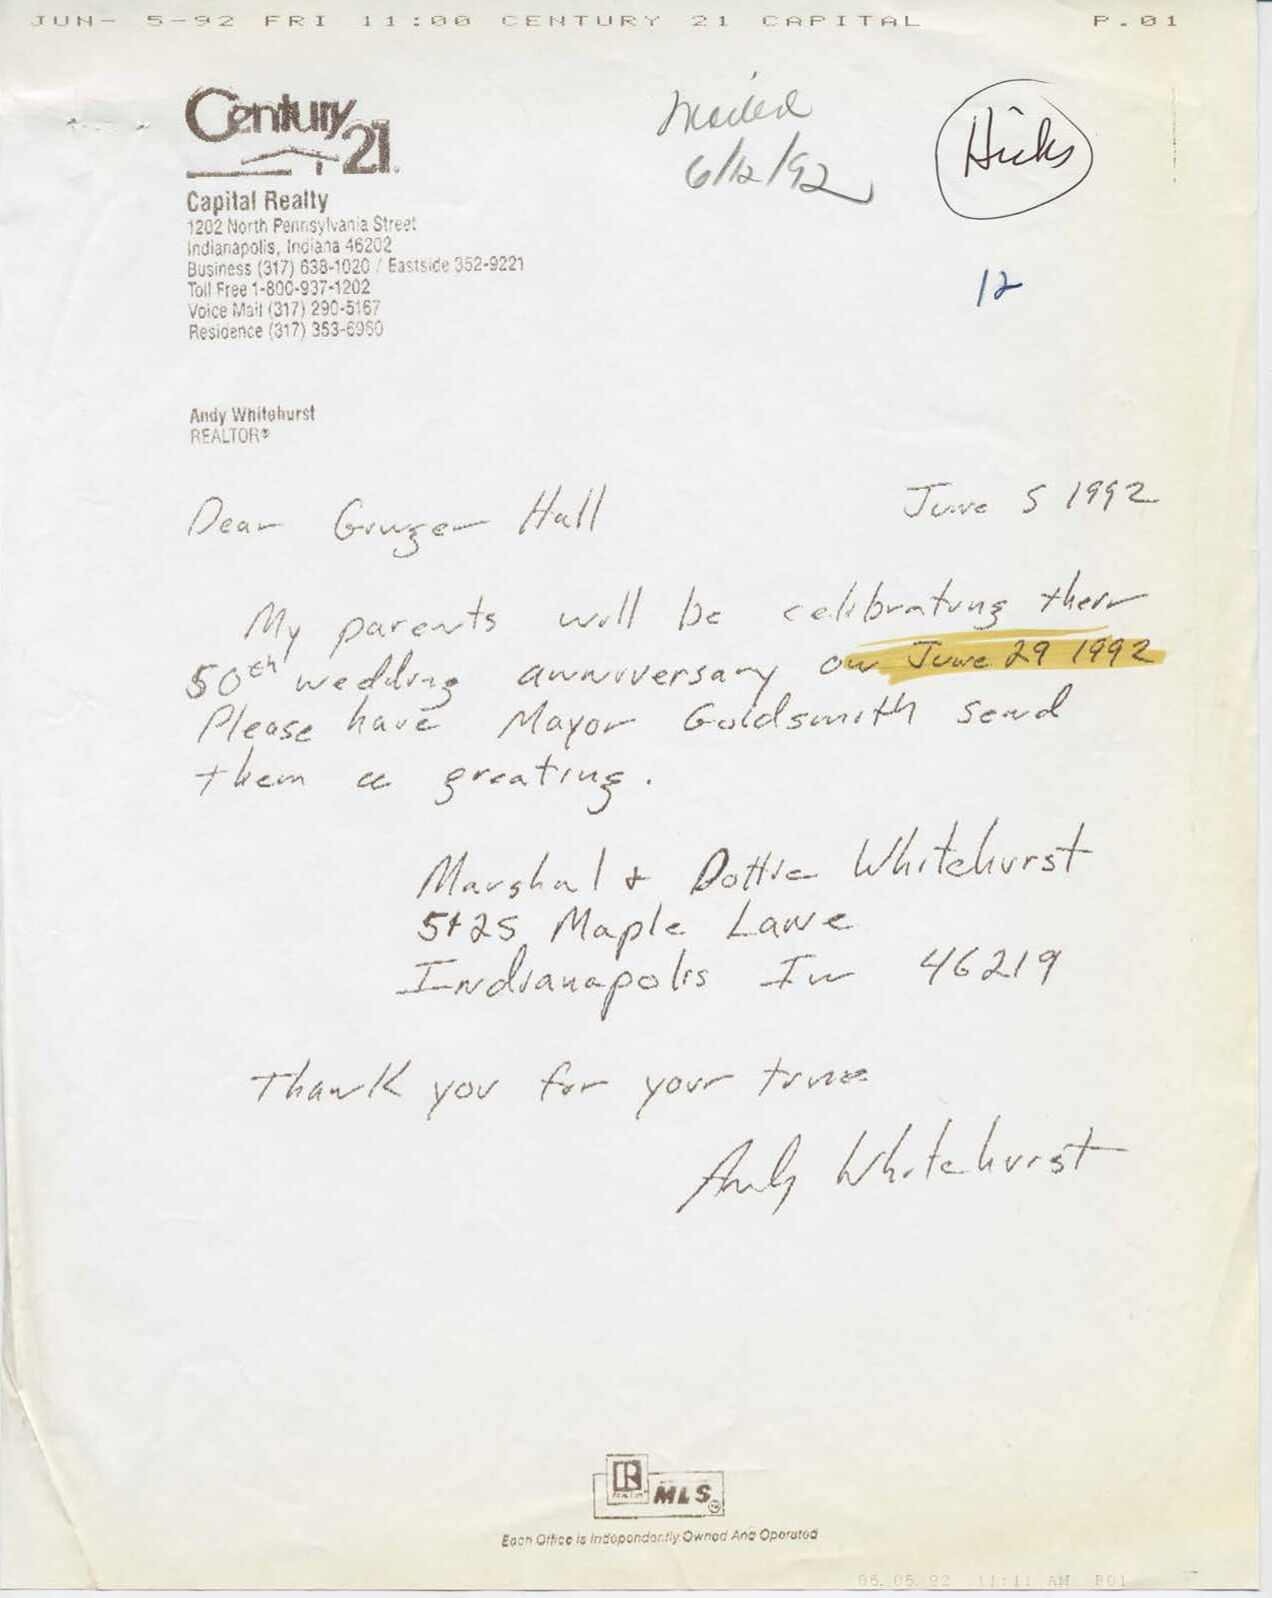 JUN- 5-92 FRI 11:00 CENTURY 21 CAPITAL P.01
Mailed
6/12/92
Hicks
12
Century 21
Capital Realty
1202 North Pennsylvania Street
Indianapolis, Indiana 46202
Business (317) 638-1020 / Eastside 352-9221
Toll Free 1-800-937-1202
Voice Mail (317) 290-5167
Residence (317) 353-6960
Andy Whitehurst
REALTOR®
June 5 1992
Dear Ginger Hall
My parents will be celibrating their
50th wedding anniversary on June 29 1992
Please have Mayor Goldsmith send
them a greating.
Marshal & Dottie Whitehurst
Maple Lane
Indianapolis In 46219
Thank you for your time
Andy Whitehurst
R
REALTOR
MLS
Each Office is Independently Owned And Operated
11:11 AM P01